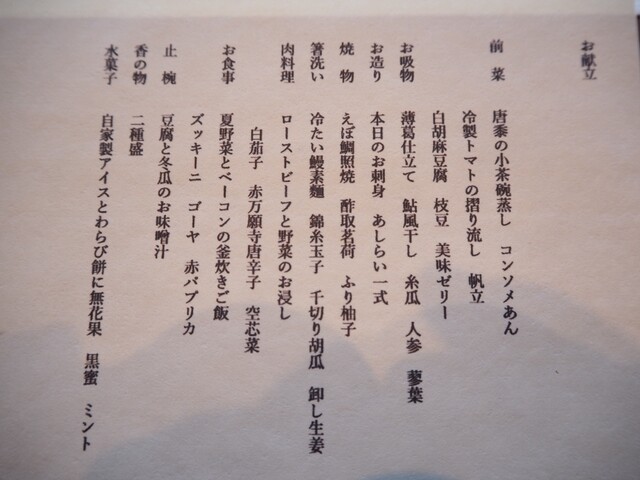 お献立
前菜 唐黍の小茶碗蒸し コンソメあん
冷製トマトの摺り流し 帆立
白胡麻豆腐 枝豆 美味ゼリー
お吸物 薄葛仕立て 鮎風干し 糸瓜 人参 蓼葉
お造り 本日のお刺身 あしらい一式
焼物 えぼ鯛照焼 酢取茗荷 ふり柚子
箸洗い 冷たい鰻素麺 錦糸玉子 千切り胡瓜 卸し生姜
肉料理 ローストビーフと野菜のお浸し
白茄子 赤万願寺唐辛子 空芯菜
お食事 夏野菜とベーコンの釜炊きご飯
ズッキーニ ゴーヤ 赤パプリカ
止椀 豆腐と冬瓜のお味噌汁
香の物 二種盛
水菓子 自家製アイスとわらび餅に無花果 黒蜜 ミント